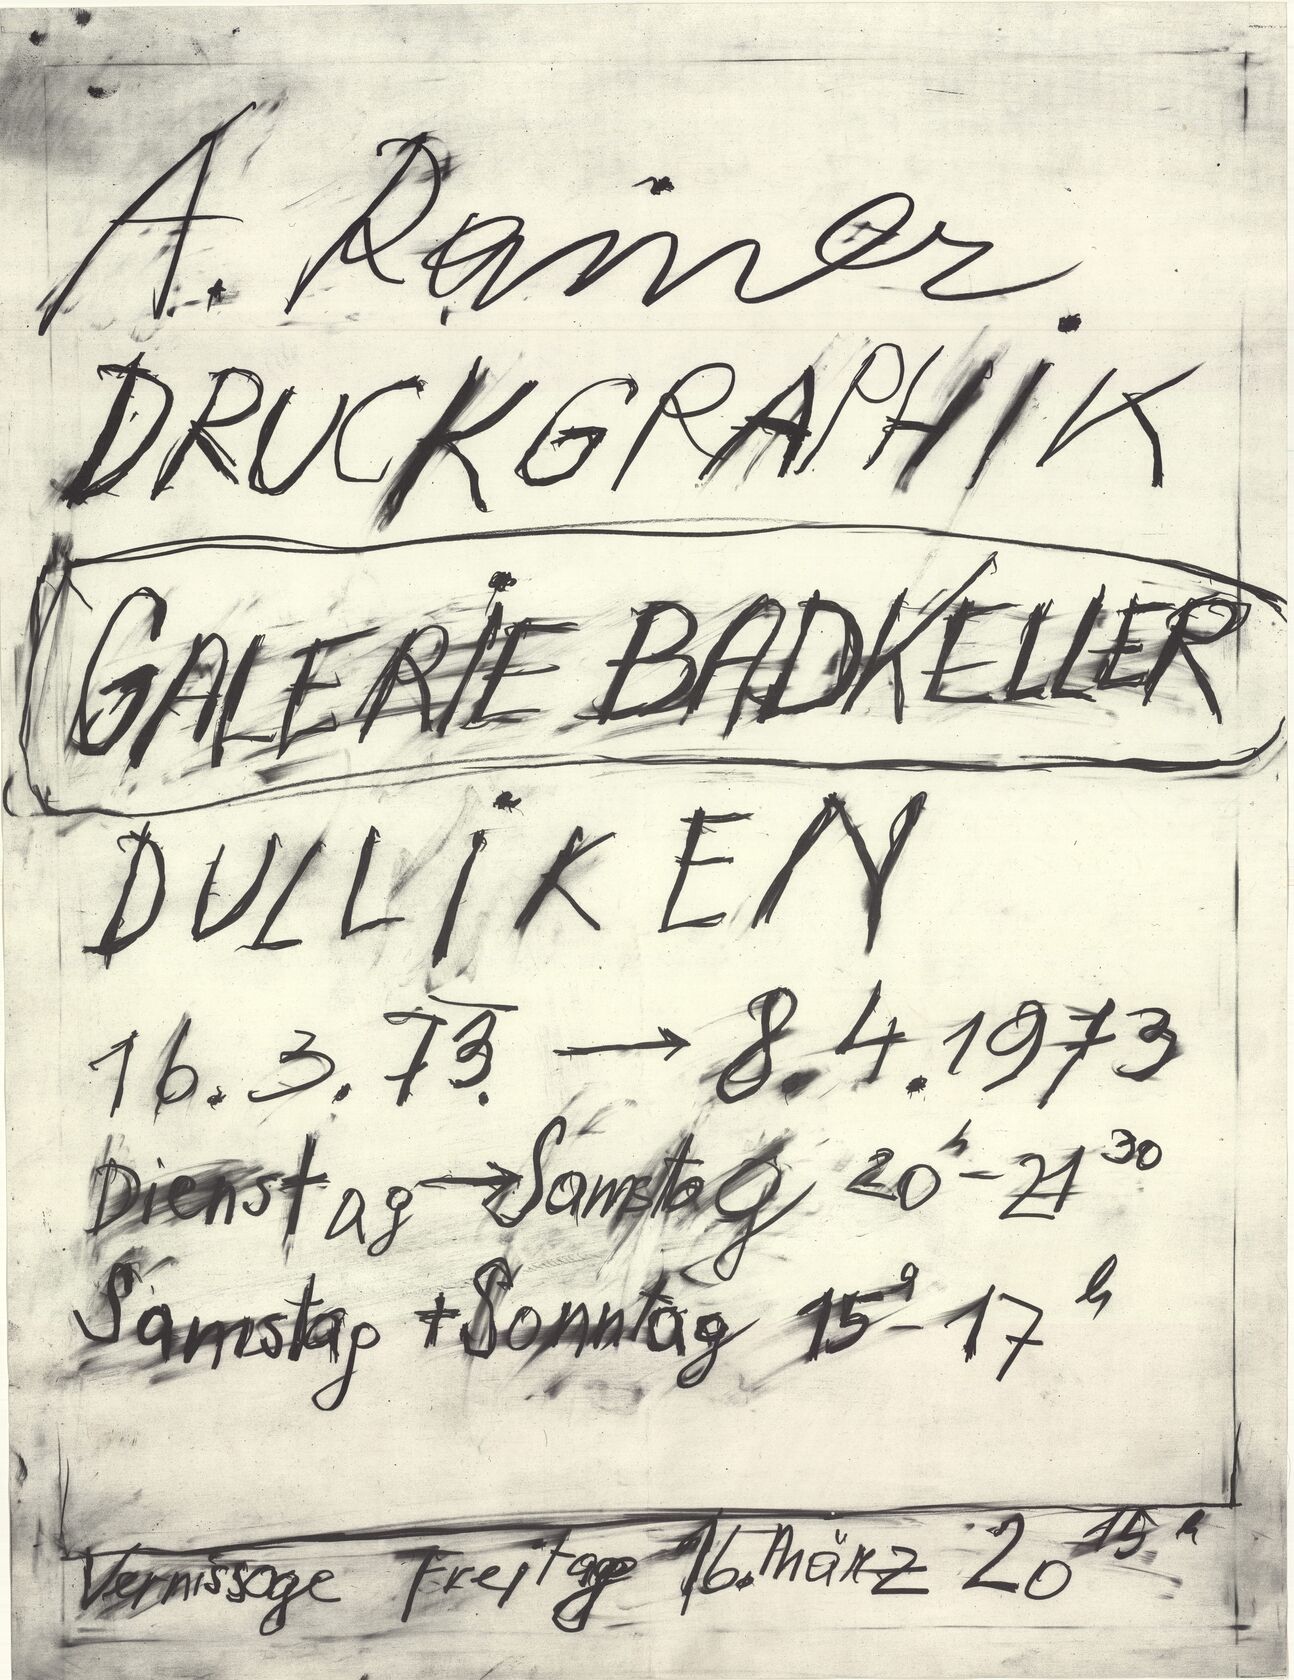 A. Rainer
DRUCKGRAPHIK
GALERIE BADKELLER
DULLIKEN
16.3.73. → 8.4.1973
Dienstag → Samstag 20h – 21 30
Samstag + Sonntag 15h – 17h
Vernissage Freitag 16. März 20 15 h